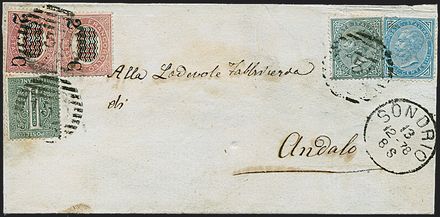 2 C
2 C
Alla Lodevole Fabbriceria
di
Andalo
SONDRIO
13
12-78
8 S